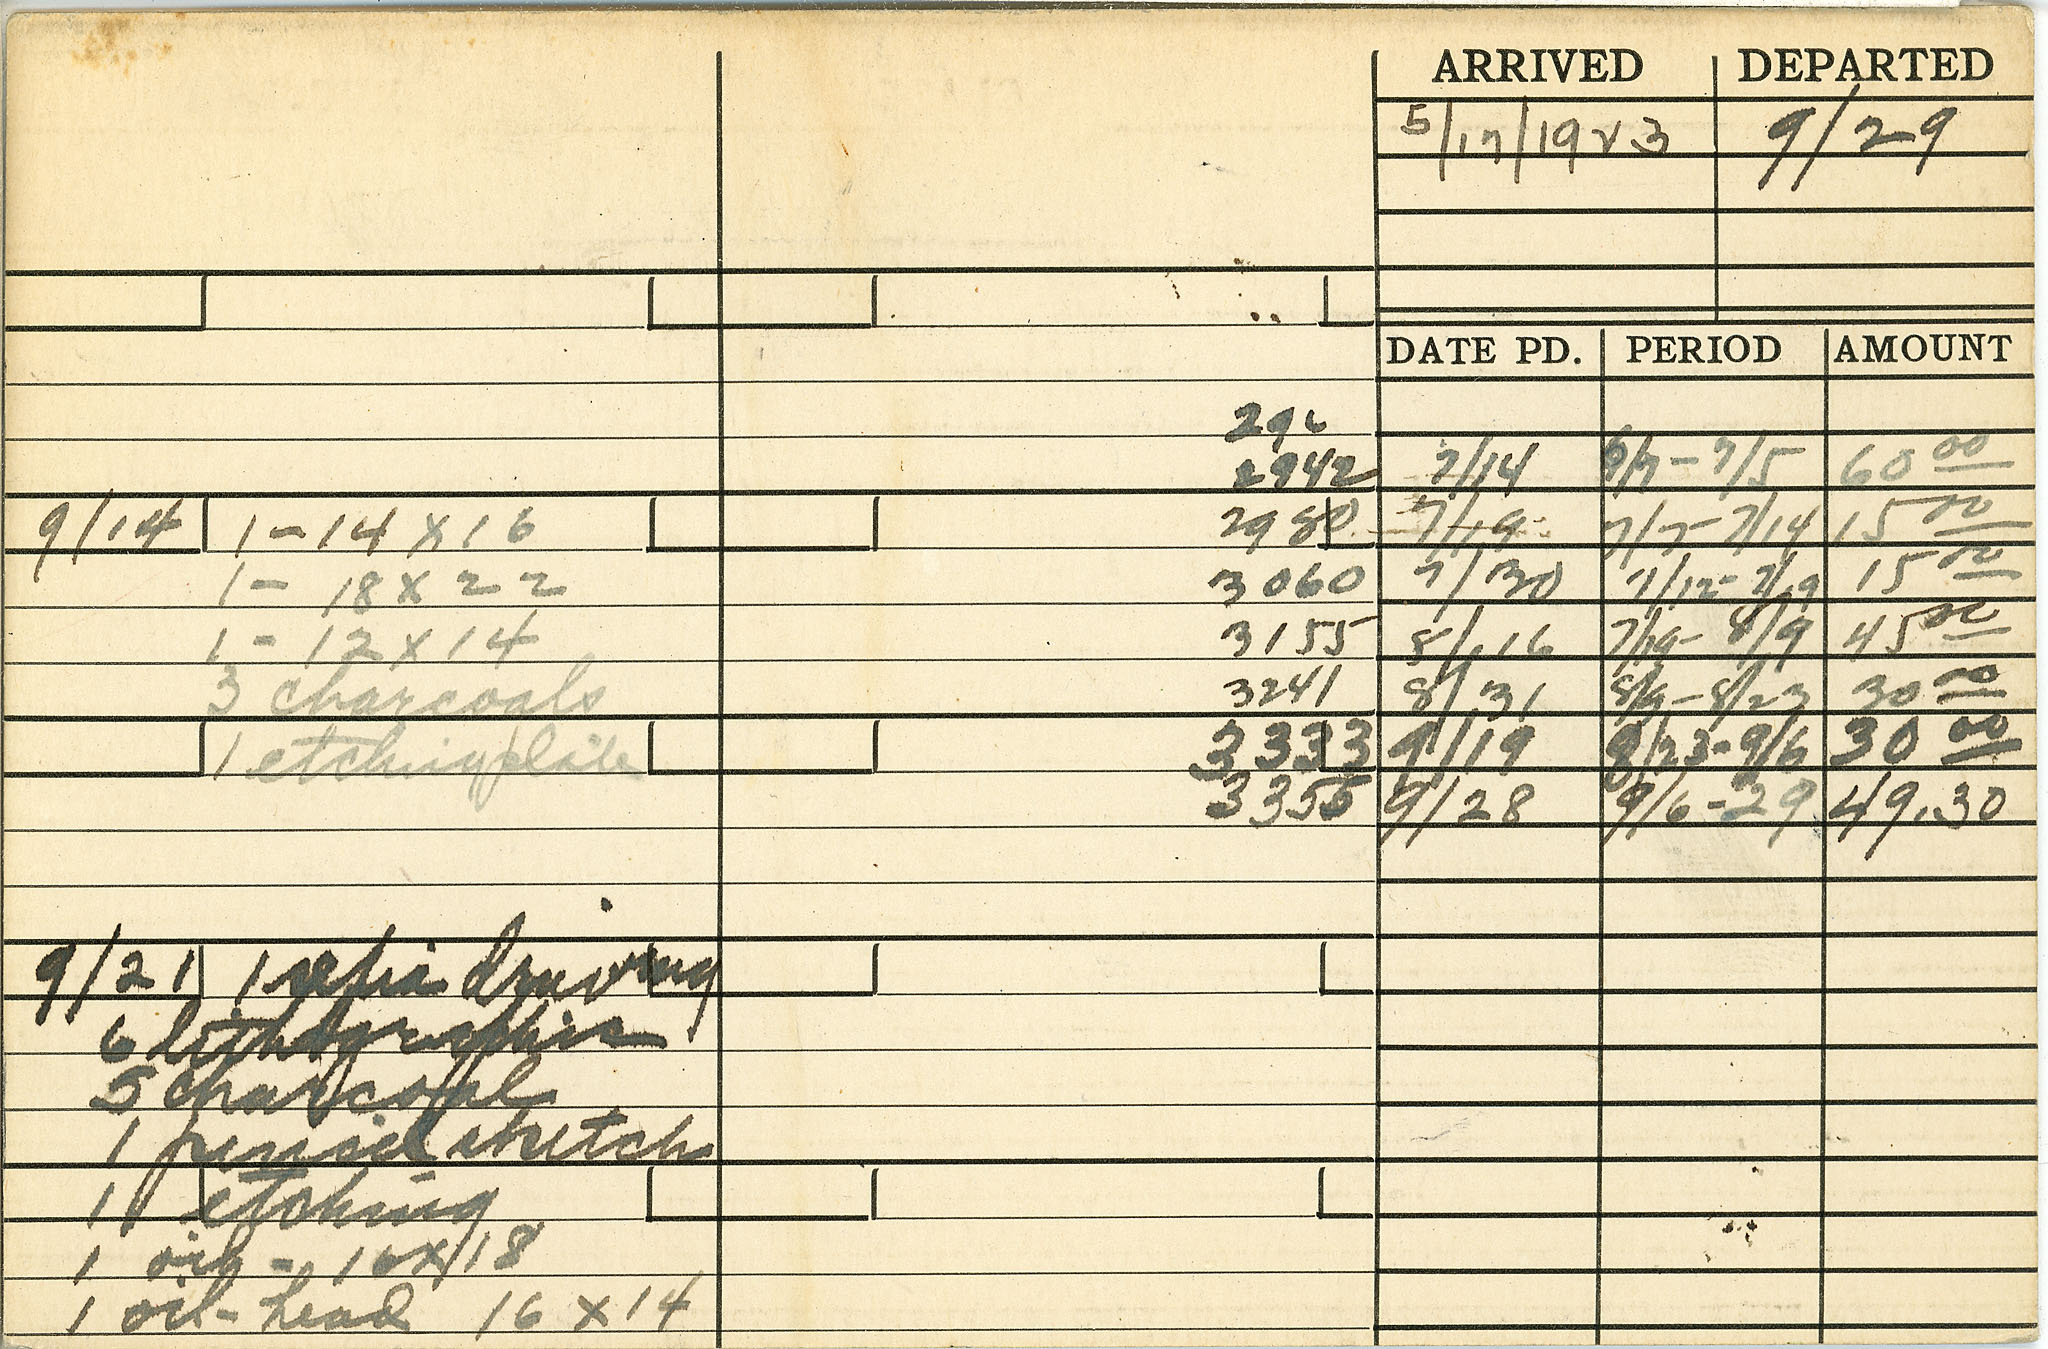 ARRIVED DEPARTED
5/17/1923 9/29
DATE PD. PERIOD AMOUNT
294
2942 7/14 6/7-7/5 60 00
9/14 1-14 x 16 2980 7/19 7/7-7/14 15 00
1- 18 x 22 3060 7/30 7/12-7/19 15 00
1- 12 x 14 3155 8/16 7/19-8/9 45 00
3 charcoals 3241 8/31 8/9-8/23 30 00
1 etching plate 3333 9/19 8/23-9/6 30 00
3355 9/28 9/6-29 49.30
9/21 1 sepia drawing
6 lithographis
5 charcoal
1 pencil sketch
1 etching
1 oil - 16x18
1 oil-head 16 x 14